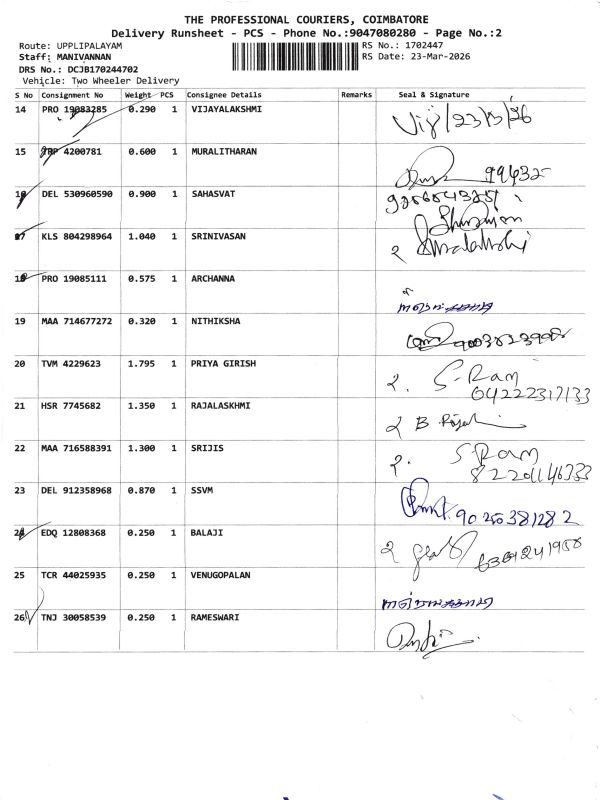 THE PROFESSIONAL COURIERS, COIMBATORE
Delivery Runsheet - PCS - Phone No.:9047080280 - Page No.:2
Route: UPPLIPALAYAM RS No.: 1702447
Staff: MANIVANNAN RS Date: 23-Mar-2026
DRS No.: DCJB170244702
Vehicle: Two Wheeler Delivery
S No Consignment No Weight PCS Consignee Details Remarks Seal & Signature
14 PRO 19083285 0.290 1 VIJAYALAKSHMI
Vij/23/3/26
15 TRP 4200781 0.600 1 MURALITHARAN
99432
16 DEL 530960590 0.900 1 SAHASVAT
17 KLS 804298964 1.040 1 SRINIVASAN
2
18 PRO 19085111 0.575 1 ARCHANNA
19 MAA 714677272 0.320 1 NITHIKSHA
20 TVM 4229623 1.795 1 PRIYA GIRISH
2. S-Ram
04222317133
21 HSR 7745682 1.350 1 RAJALASKHMI
2 B
22 MAA 716588391 1.300 1 SRIJIS
2. S Ram
8220146333
23 DEL 912358968 0.870 1 SSVM
90250381282
24 EDQ 12808368 0.250 1 BALAJI
2
25 TCR 44025935 0.250 1 VENUGOPALAN
26 TNJ 30058539 0.250 1 RAMESWARI